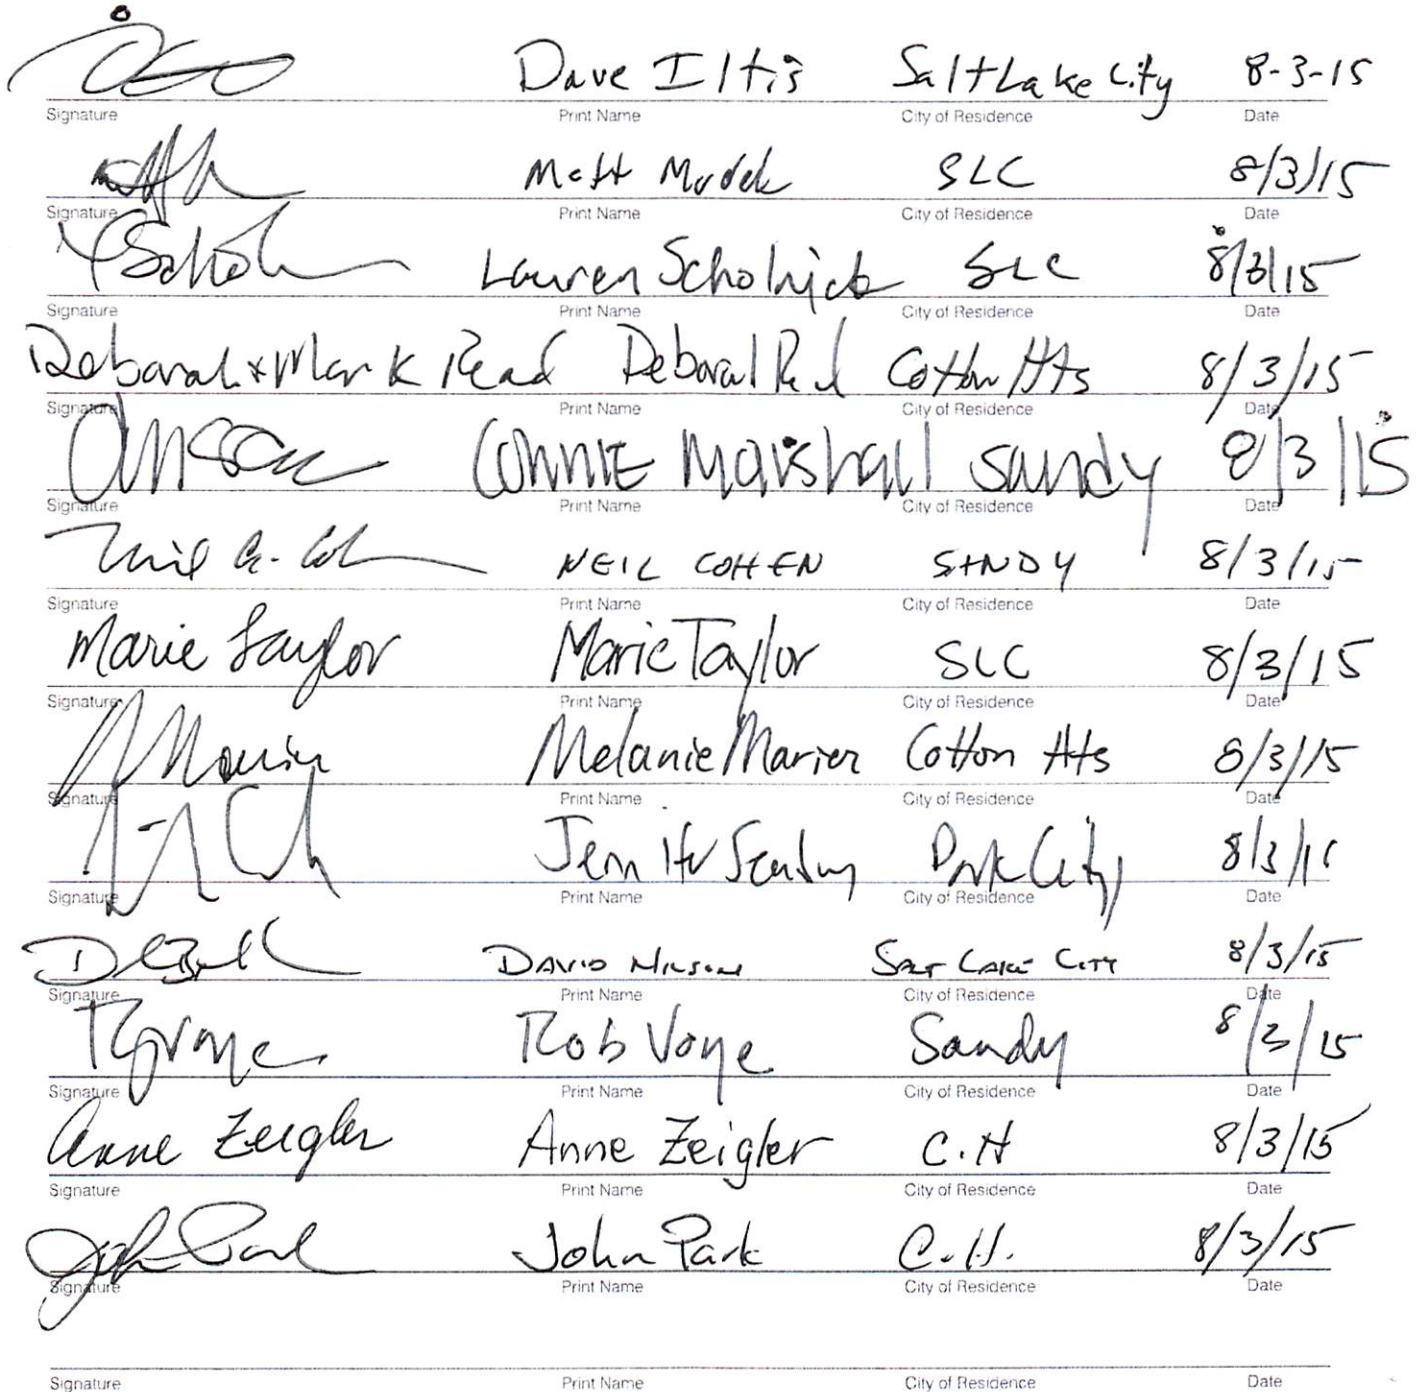 Dave Iltis Salt Lake City 8-3-15
Signature Print Name City of Residence Date
Matt SLC 8/3/15
Signature Print Name City of Residence Date
Lauren Scholnick SLC 8/3/15
Signature Print Name City of Residence Date
Deborah + Mark Read Deborah Read Cotton Hts 8/3/15
Signature Print Name City of Residence Date
Connie Marshall Sandy 8/3/15
Signature Print Name City of Residence Date
Neil G. Cohen NEIL COHEN SANDY 8/3/15
Signature Print Name City of Residence Date
Marie Taylor Marie Taylor SLC 8/3/15
Signature Print Name City of Residence Date
Melanie Marier Cotton Hts 8/3/15
Signature Print Name City of Residence Date
Park City
Signature Print Name City of Residence Date
DAVID SALT LAKE CITY 8/3/15
Signature Print Name City of Residence Date
Rob Voye Sandy 8/3/15
Signature Print Name City of Residence Date
Anne Zeigler Anne Zeigler C.H 8/3/15
Signature Print Name City of Residence Date
John Park John Park C.H. 8/3/15
Signature Print Name City of Residence Date
Signature Print Name City of Residence Date